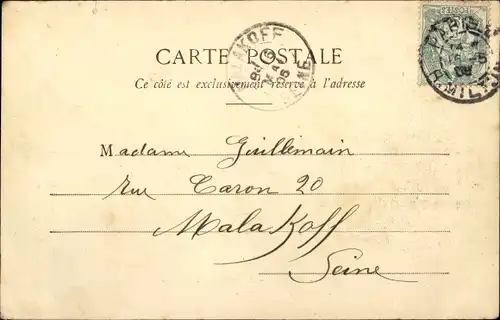 CARTE POSTALE
Ce côté est exclusivement réservé à l'adresse
MALAKOFF
SEINE
PARIS
R. MILTON
Madame Guillemain
rue Caron 20
Malakoff
Seine